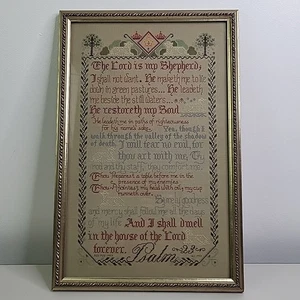 The Lord is my Shepherd,
I shall not want. He maketh me to lie
down in green pastures... He leadeth
me beside the still waters...
He restoreth my Soul
He leadeth me in paths of righteousness
for his name's sake. Yea, though I
walk through the valley of the shadow
of death, I will fear no evil, for
thou art with me, Thy
rod and thy staff they comfort me.
Thou preparest a table before me in the
presence of mine enemies
Thou anointest my head with oil; my cup
runneth over. Surely goodness
and mercy shall follow me all the days
of my life. And I shall dwell
in the house of the Lord
forever. Psalm 23